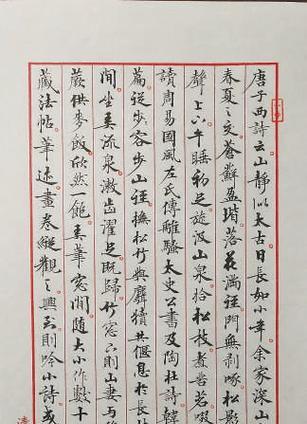 唐子西詩云山靜似太古日長如小年余家深山
春夏之交蒼蘚盈堦落花滿徑門無剝啄松影
聲上下午睡初足旋汲山泉拾松枝煮苦茗啜
讀周易國風左氏傳離騷太史公書及陶杜詩韓
篇從步容步山徑撫松竹與麛犢共偃息於長
間坐弄流泉漱齒濯足既歸竹窗下則山妻与
蕨供麥飯欣然一飽弄筆窗間隨大小作數十
藏法帖筆迹畫卷縱觀之興到則吟小詩或